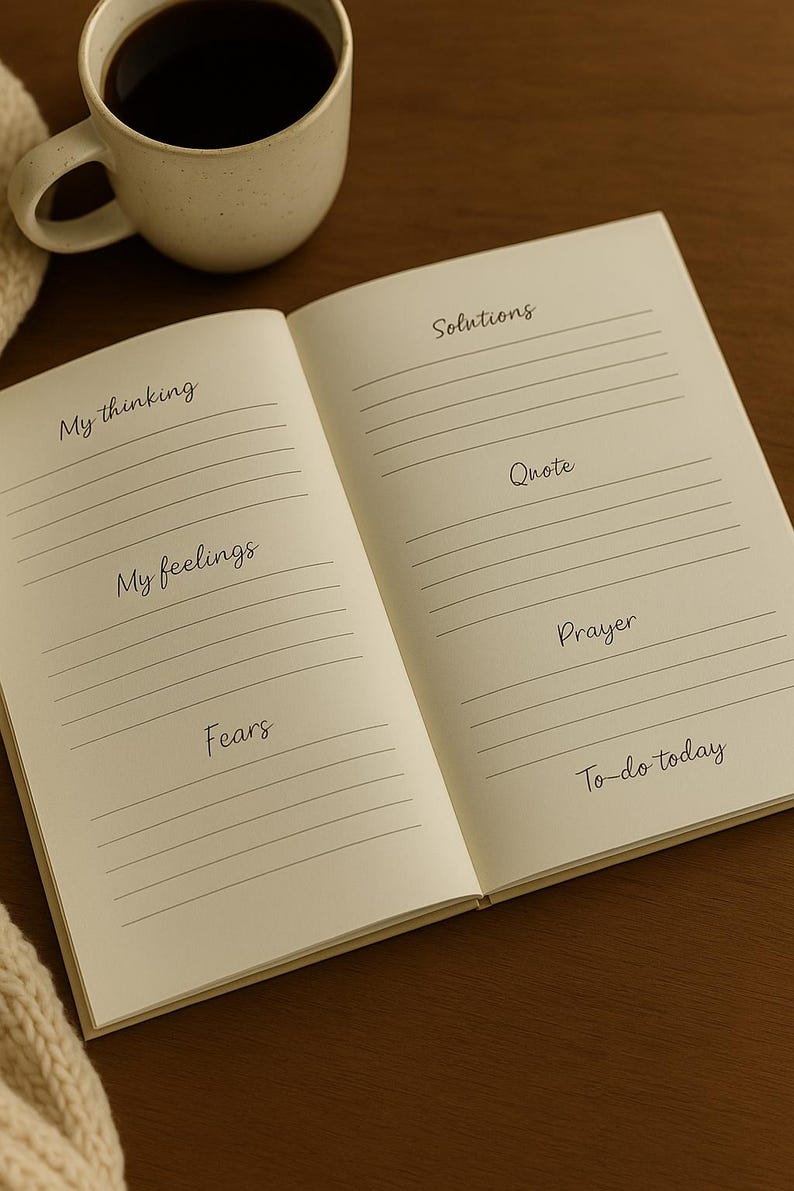 My thinking
My feelings
Fears
Solutions
Quote
Prayer
To-do today